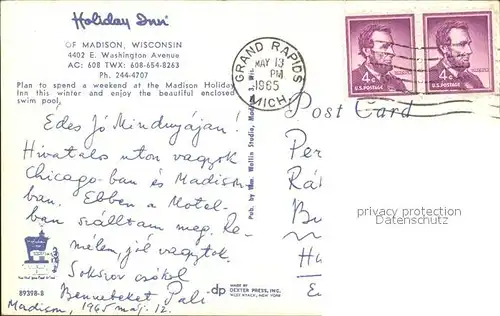 Holiday Inn
OF MADISON, WISCONSIN
4402 E. Washington Avenue
AC: 608 TWX: 608-654-8263
Ph. 244-4707
Plan to spend a weekend at the Madison Holiday
Inn this winter and enjoy the beautiful enclosed
swim pool.
Édes Jó Mindnyájan!
Hivatalos uton vagyok
Chicago-ban és Madison-
ban. Ebben a Motel-
ban szálltam meg. Re-
mélem, jól vagytok.
Sokszor csókol
Bennebeket Pali
Madison, 1965 máj. 12.
89398-B
Pub. by Wm. Wollin Studio, Madison 3, Wis.
dp
MADE BY
DEXTER PRESS, INC.
WEST NYACK, NEW YORK
GRAND RAPIDS
MAY 13
PM
1965
MICH.
4¢
U.S.POSTAGE
4¢
U.S.POSTAGE
Post Card
Per
Rá
Bu
Hu
E
privacy protection
Datenschutz